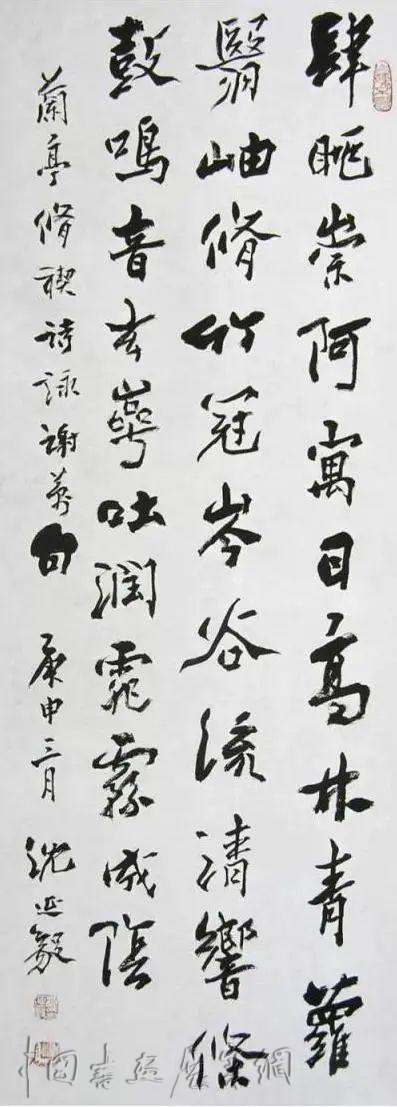 肆眺崇阿寓目高林青蘿
翳岫脩竹冠岑谷流清響條
鼓鳴音玄崿吐潤霏霧成陰
蘭亭脩禊詩詠謝萬句 庚申三月 沈延毅
中國書法展網